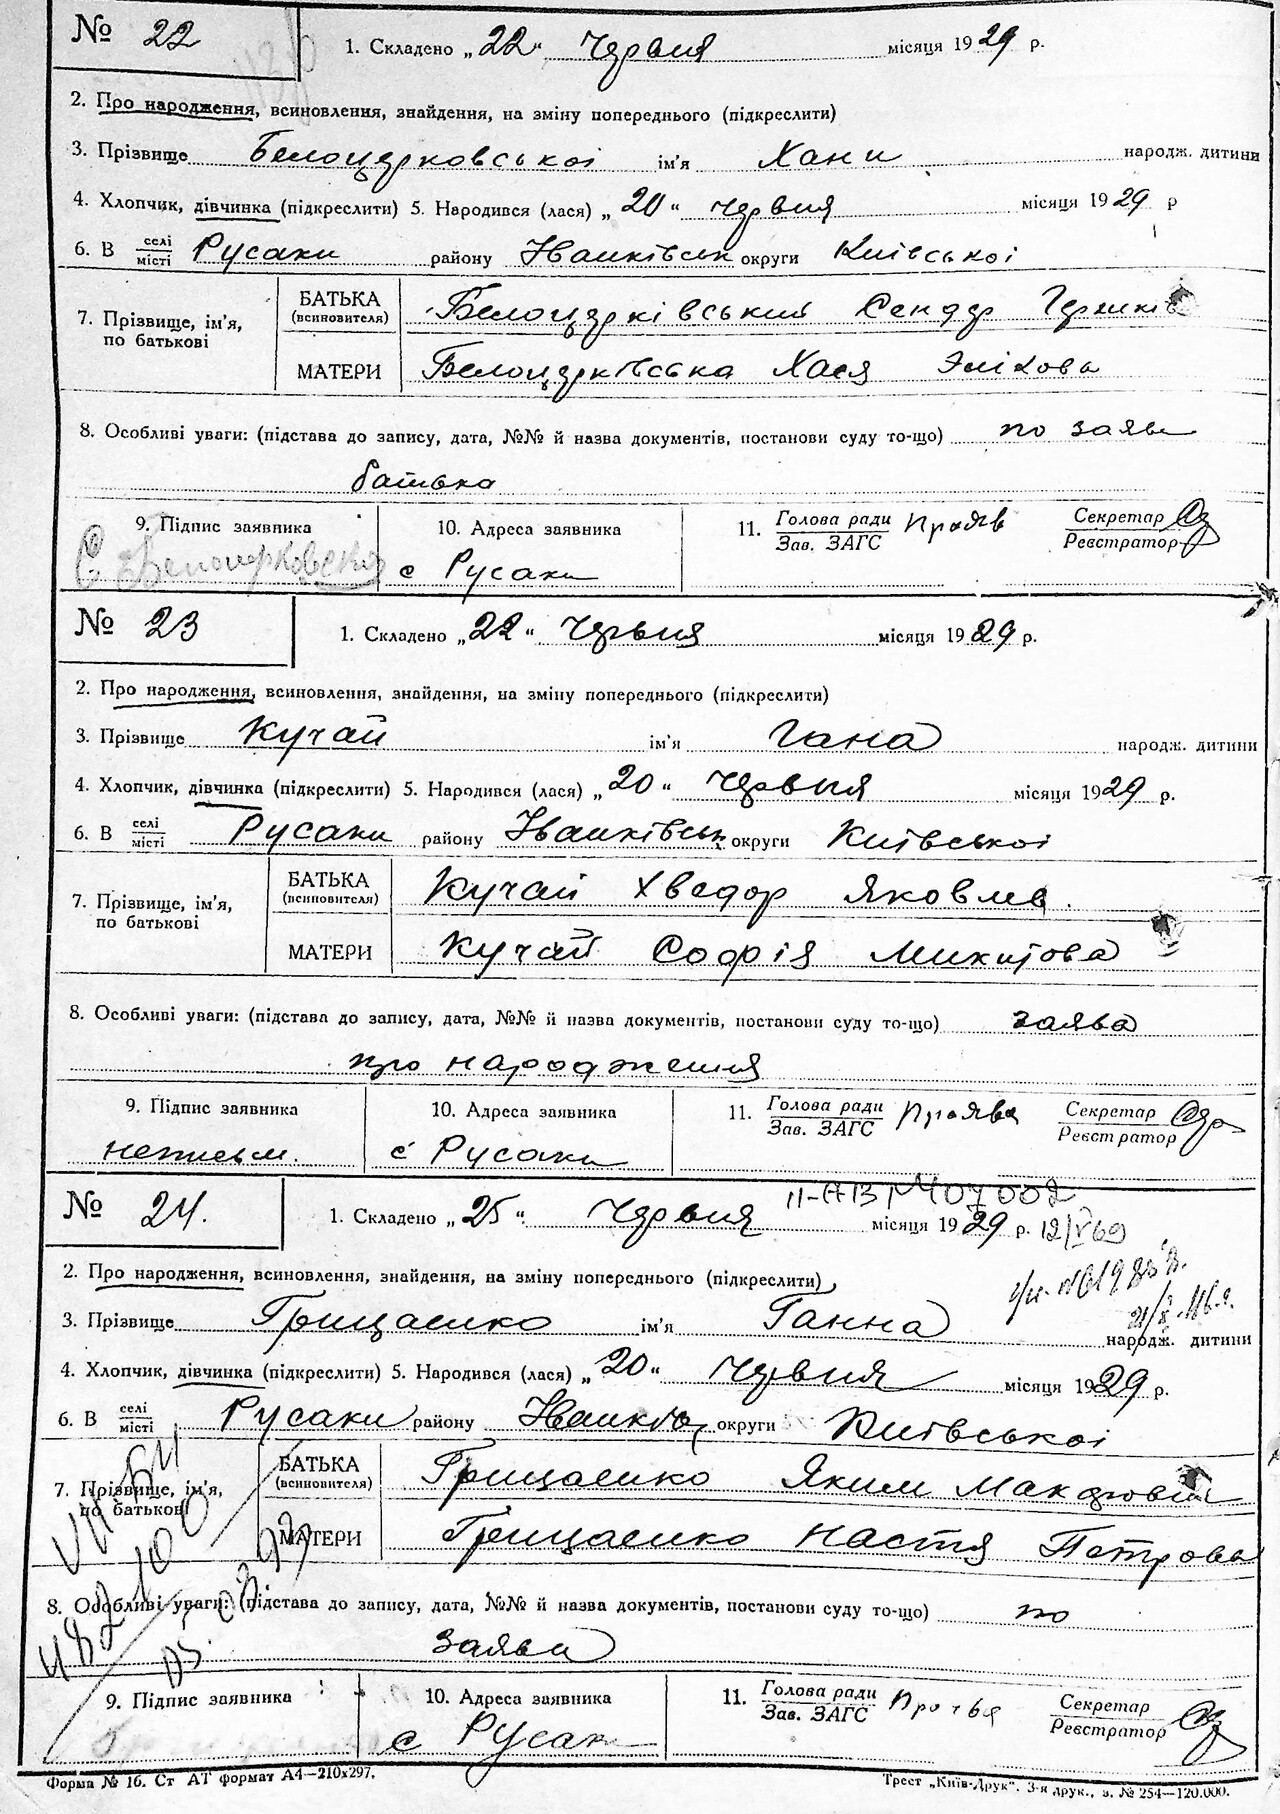 № 22
1. Складено „22“ Червня місяця 1929 р.
2. Про народження, всиновлення, знайдення, на зміну попереднього (підкреслити)
3. Прізвище Белоцерковської ім'я Хани народж. дитини
4. Хлопчик, дівчинка (підкреслити) 5. Народився (лася) „20“ червня місяця 1929 р
6. В селі/місті Русаки району Іванківськ округи Київської
7. Прізвище, ім'я, по батькові
БАТЬКА (всиновителя) Белоцерківський Сендер
МАТЕРИ Белоцерківська Хася
8. Особливі уваги: (підстава до запису, дата, №№ й назва документів, постанови суду то-що) по заяві
батька
9. Підпис заявника
10. Адреса заявника
11. Голова ради/Зав. ЗАГС
Секретар/Реєстратор
с Русаки
№ 23
1. Складено „22“ Червня місяця 1929 р.
2. Про народження, всиновлення, знайдення, на зміну попереднього (підкреслити)
3. Прізвище Кучай ім'я Гана народж. дитини
4. Хлопчик, дівчинка (підкреслити) 5. Народився (лася) „20“ червня місяця 1929 р.
6. В селі/місті Русаки району Іванківськ округи Київської
7. Прізвище, ім'я, по батькові
БАТЬКА (всиновителя) Кучай Хведор Яковлев.
МАТЕРИ Кучай Софія Микитова
8. Особливі уваги: (підстава до запису, дата, №№ й назва документів, постанови суду то-що) заява
про народження
9. Підпис заявника
10. Адреса заявника
11. Голова ради/Зав. ЗАГС
Секретар/Реєстратор
неписьм. с Русаки
№ 24.
II-АВ № 407002
1. Складено „25“ Червня місяця 1929 р. 12/V 69
2. Про народження, всиновлення, знайдення, на зміну попереднього (підкреслити)
3. Прізвище Грищаенко ім'я Ганна народж. дитини
4. Хлопчик, дівчинка (підкреслити) 5. Народився (лася) „20“ червня місяця 1929 р.
6. В селі/місті Русаки району Іванків округи Київської
7. Прізвище, ім'я, по батькові
БАТЬКА (всиновителя) Грищаенко Яким
МАТЕРИ Грищаенко Настя Петрова
8. Особливі уваги: (підстава до запису, дата, №№ й назва документів, постанови суду то-що) по
заяві
9. Підпис заявника
10. Адреса заявника
11. Голова ради/Зав. ЗАГС
Секретар/Реєстратор
с Русаки
Форма № 16. Ст АТ формат А4—210x297.
Трест „Київ-Друк“. 3-я друк., з. № 254—120.000.